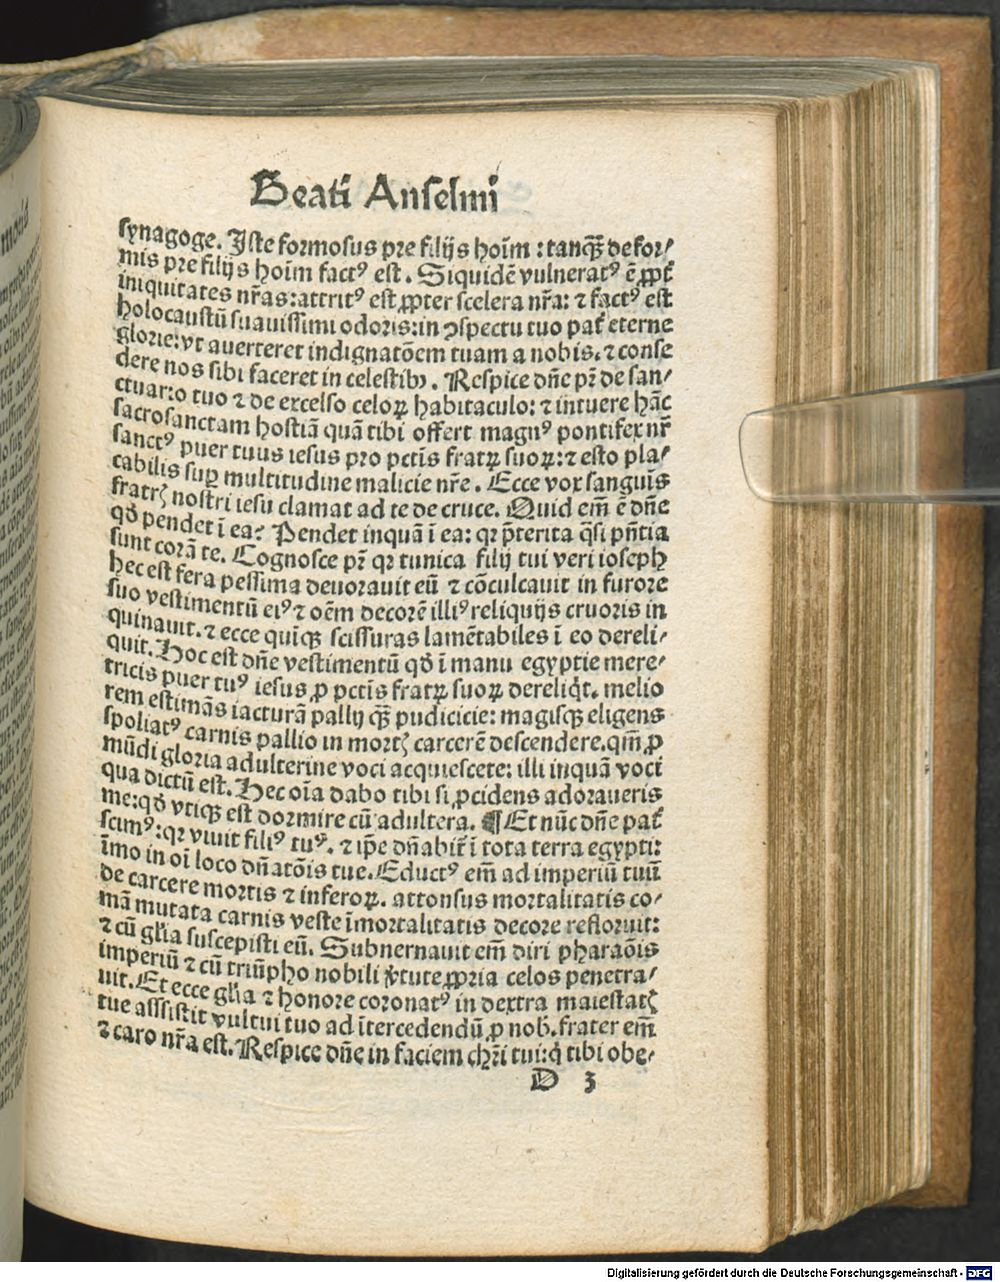 Beati Anselmi
synagoge. Iste formosus pre filijs hoīm : tanqꝫ defor⸗
mis pre filijs hoīm factꝰ est. Siquidē vulneratꝰ ē ꝓpt̃
iniquitates nr̃as: attritꝰ est ꝓpter scelera nr̃a: ⁊ factꝰ est
holocaustū suauissimi odoris: in ꝯspectu tuo pat̃ eterne
glorie: vt auerteret indignatōem tuam a nobis. ⁊ conse
dere nos sibi faceret in celestibꝫ. Respice dn̄e pr̃ de san⸗
ctuario tuo ⁊ de excelso celoꝝ habitaculo: ⁊ intuere hāc
sacrosanctam hostiā quā tibi offert magnꝰ pontifex nr̃
sanctꝰ puer tuus iesus pro pctīs fratꝝ suoꝝ: ⁊ esto pla⸗
cabilis suꝑ multitudine malicie nr̃e. Ecce vox sanguīs
fratrꝭ nostri iesu clamat ad te de cruce. Quid em̄ ē dn̄e
qđ pendet ī ea? Pendet inquā ī ea: qꝛ p̄terita q̄si pn̄tia
sunt corā te. Cognosce pr̃ qꝛ tunica filij tui veri ioseph
hec est fera pessima deuorauit eū ⁊ cōculcauit in furore
suo vestimentū eiꝰ ⁊ oēm decorē illiꝰ reliquijs cruoris in
quinauit. ⁊ ecce quīqꝫ scissuras lamētabiles ī eo dereli⸗
quit. Hoc est dn̄e vestimentū qđ ī manu egyptie mere⸗
tricis puer tuꝰ iesus ꝓ pctīs fratꝝ suoꝝ dereliq̇t. melio
rem estimās iacturā pallij qꝫ pudicicie: magisqꝫ eligens
spoliatꝰ carnis pallio in mortꝭ carcerē descendere. qm̄ ꝓ
mūdi gloria adulterine voci acquiescere: illi inquā voci
qua dictū est. Hec oīa dabo tibi si ꝓcidens adoraueris
me: qđ vtiqꝫ est dormire cū adultera. ¶ Et nūc dn̄e pat̃
scimꝰ: qꝛ viuit filiꝰ tuꝰ. ⁊ ip̄e dn̄abit̃ ī tota terra egypti:
īmo in oī loco dn̄atōis tue. Eductꝰ em̄ ad imperiū tuū
de carcere mortis ⁊ inferoꝝ. attonsus mortalitatis co⸗
mā mutata carnis veste īmortalitatis decore refloruit:
⁊ cū gl̄ia suscepisti eū. Subneruauit em̄ diri pharaōis
imperiū ⁊ cū triūpho nobili v̓tute ꝓpria celos penetra⸗
uit. Et ecce gl̄ia ⁊ honore coronatꝰ in dextra maiestatꝭ
tue asssistit vultui tuo ad ītercedendū ꝓ nob. frater em̄
⁊ caro nr̃a est. Respice dn̄e in faciem chr̄i tui: q̇ tibi obe⸗
D 3
Digitalisierung gefördert durch die Deutsche Forschungsgemeinschaft - DFG